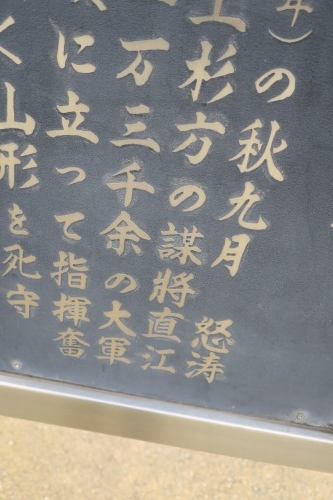 年）の秋九月 怒涛
上杉方の謀将直江
万三千余の大軍
に立って指揮奮
く山形を死守